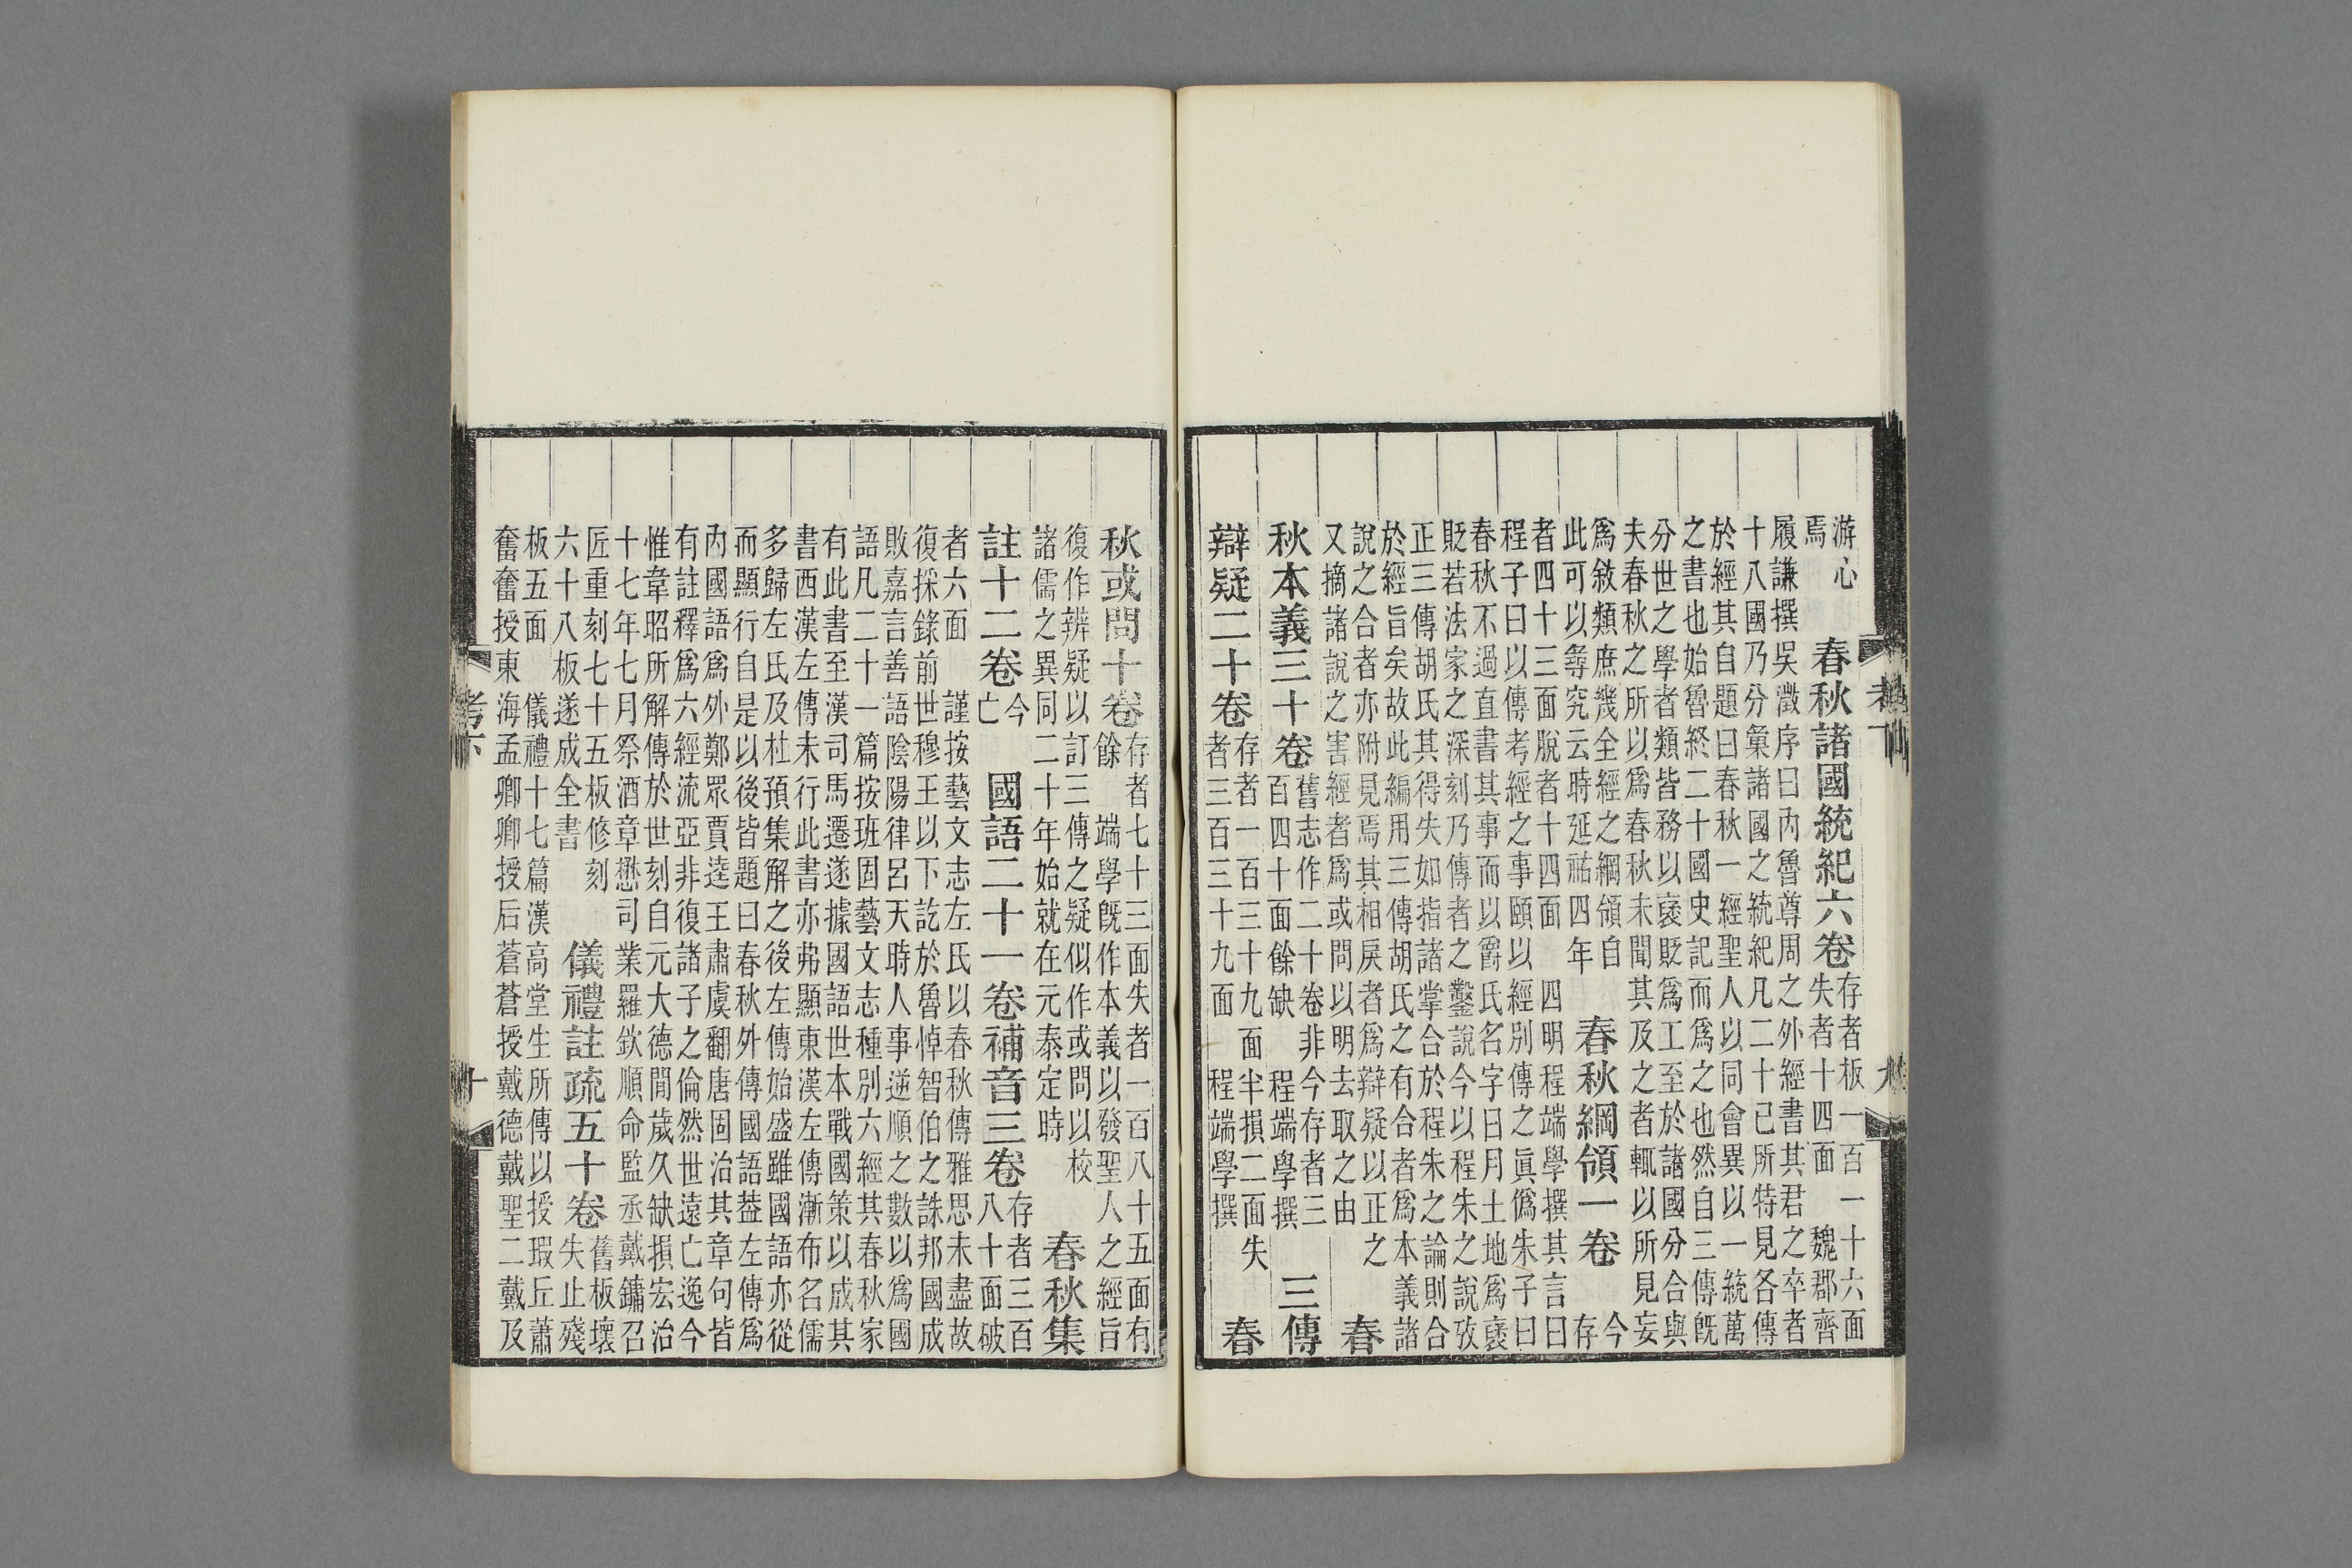 游心
焉
春秋諸國統紀六卷
存者板一百一十六面
失者十四面 魏郡齊
履謙撰吳澂序曰內魯尊周之外經書其君之卒者
十八國乃分彙諸國之統紀凡二十已所特見各傳
於經其自題曰春秋一經聖人以同會異以一統萬
之書也始魯終二十國史記而爲之也然自三傳旣
分世之學者類皆務以褒貶爲工至於諸國分合與
夫春秋之所以爲春秋未聞其及之者輒以所見妄
爲敘類庶幾全經之綱領自
此可以尋究云時延祐四年
春秋綱領一卷
今
存
者四十三面脫者十四面 四明程端學撰其言曰
程子曰以傳考經之事頤以經別傳之眞僞朱子曰
春秋不過直書其事而以爵氏名字日月土地爲褒
貶若法家之深刻乃傳者之鑿說今以程朱之說攷
正三傳胡氏其得失如指諸掌合於程朱之論則合
於經旨矣故此編用三傳胡氏之有合者爲本義諸
說之合者亦附見焉其相戾者爲辯疑以正之
又摘諸說之害經者爲或問以明去取之由
春
秋本義三十卷
舊志作二十卷非今存者三
百四十面餘缺 程端學撰
三傳
辯疑二十卷
存者一百三十九面半損二面失
者三百三十九面 程端學撰
春
秋或問十卷
存者七十三面失者一百八十五面有
餘 端學旣作本義以發聖人之經旨
復作辨疑以訂三傳之疑似作或問以校
諸儒之異同二十年始就在元泰定時
春秋集
註十二卷
今
亡
國語二十一卷補音三卷
存者三百
八十面破
者六面 謹按藝文志左氏以春秋傳雅思未盡故
復採錄前世穆王以下訖於魯悼智伯之誅邦國成
敗嘉言善語陰陽律呂天時人事逆順之數以爲國
語凡二十一篇按班固藝文志種別六經其春秋家
有此書至漢司馬遷遂據國語世本戰國策以成其
書西漢左傳未行此書亦弗顯東漢左傳漸布名儒
多歸左氏及杜預集解之後左傳始盛雖國語亦從
而顯行自是以後皆題曰春秋外傳國語葢左傳爲
內國語爲外鄭眾賈逵王肅虞翻唐固治其章句皆
有註釋爲六經流亞非復諸子之倫然世遠亡逸今
惟韋昭所解傳於世刻自元大德間歲久缺損宏治
十七年七月祭酒章懋司業羅欽順命監丞戴鏞召
匠重刻七十五板修刻
六十八板遂成全書
儀禮註疏五十卷
舊板壞
失止殘
板五面 儀禮十七篇漢高堂生所傳以授瑕丘蕭
奮奮授東海孟卿卿授后蒼蒼授戴德戴聖二戴及
考下
十